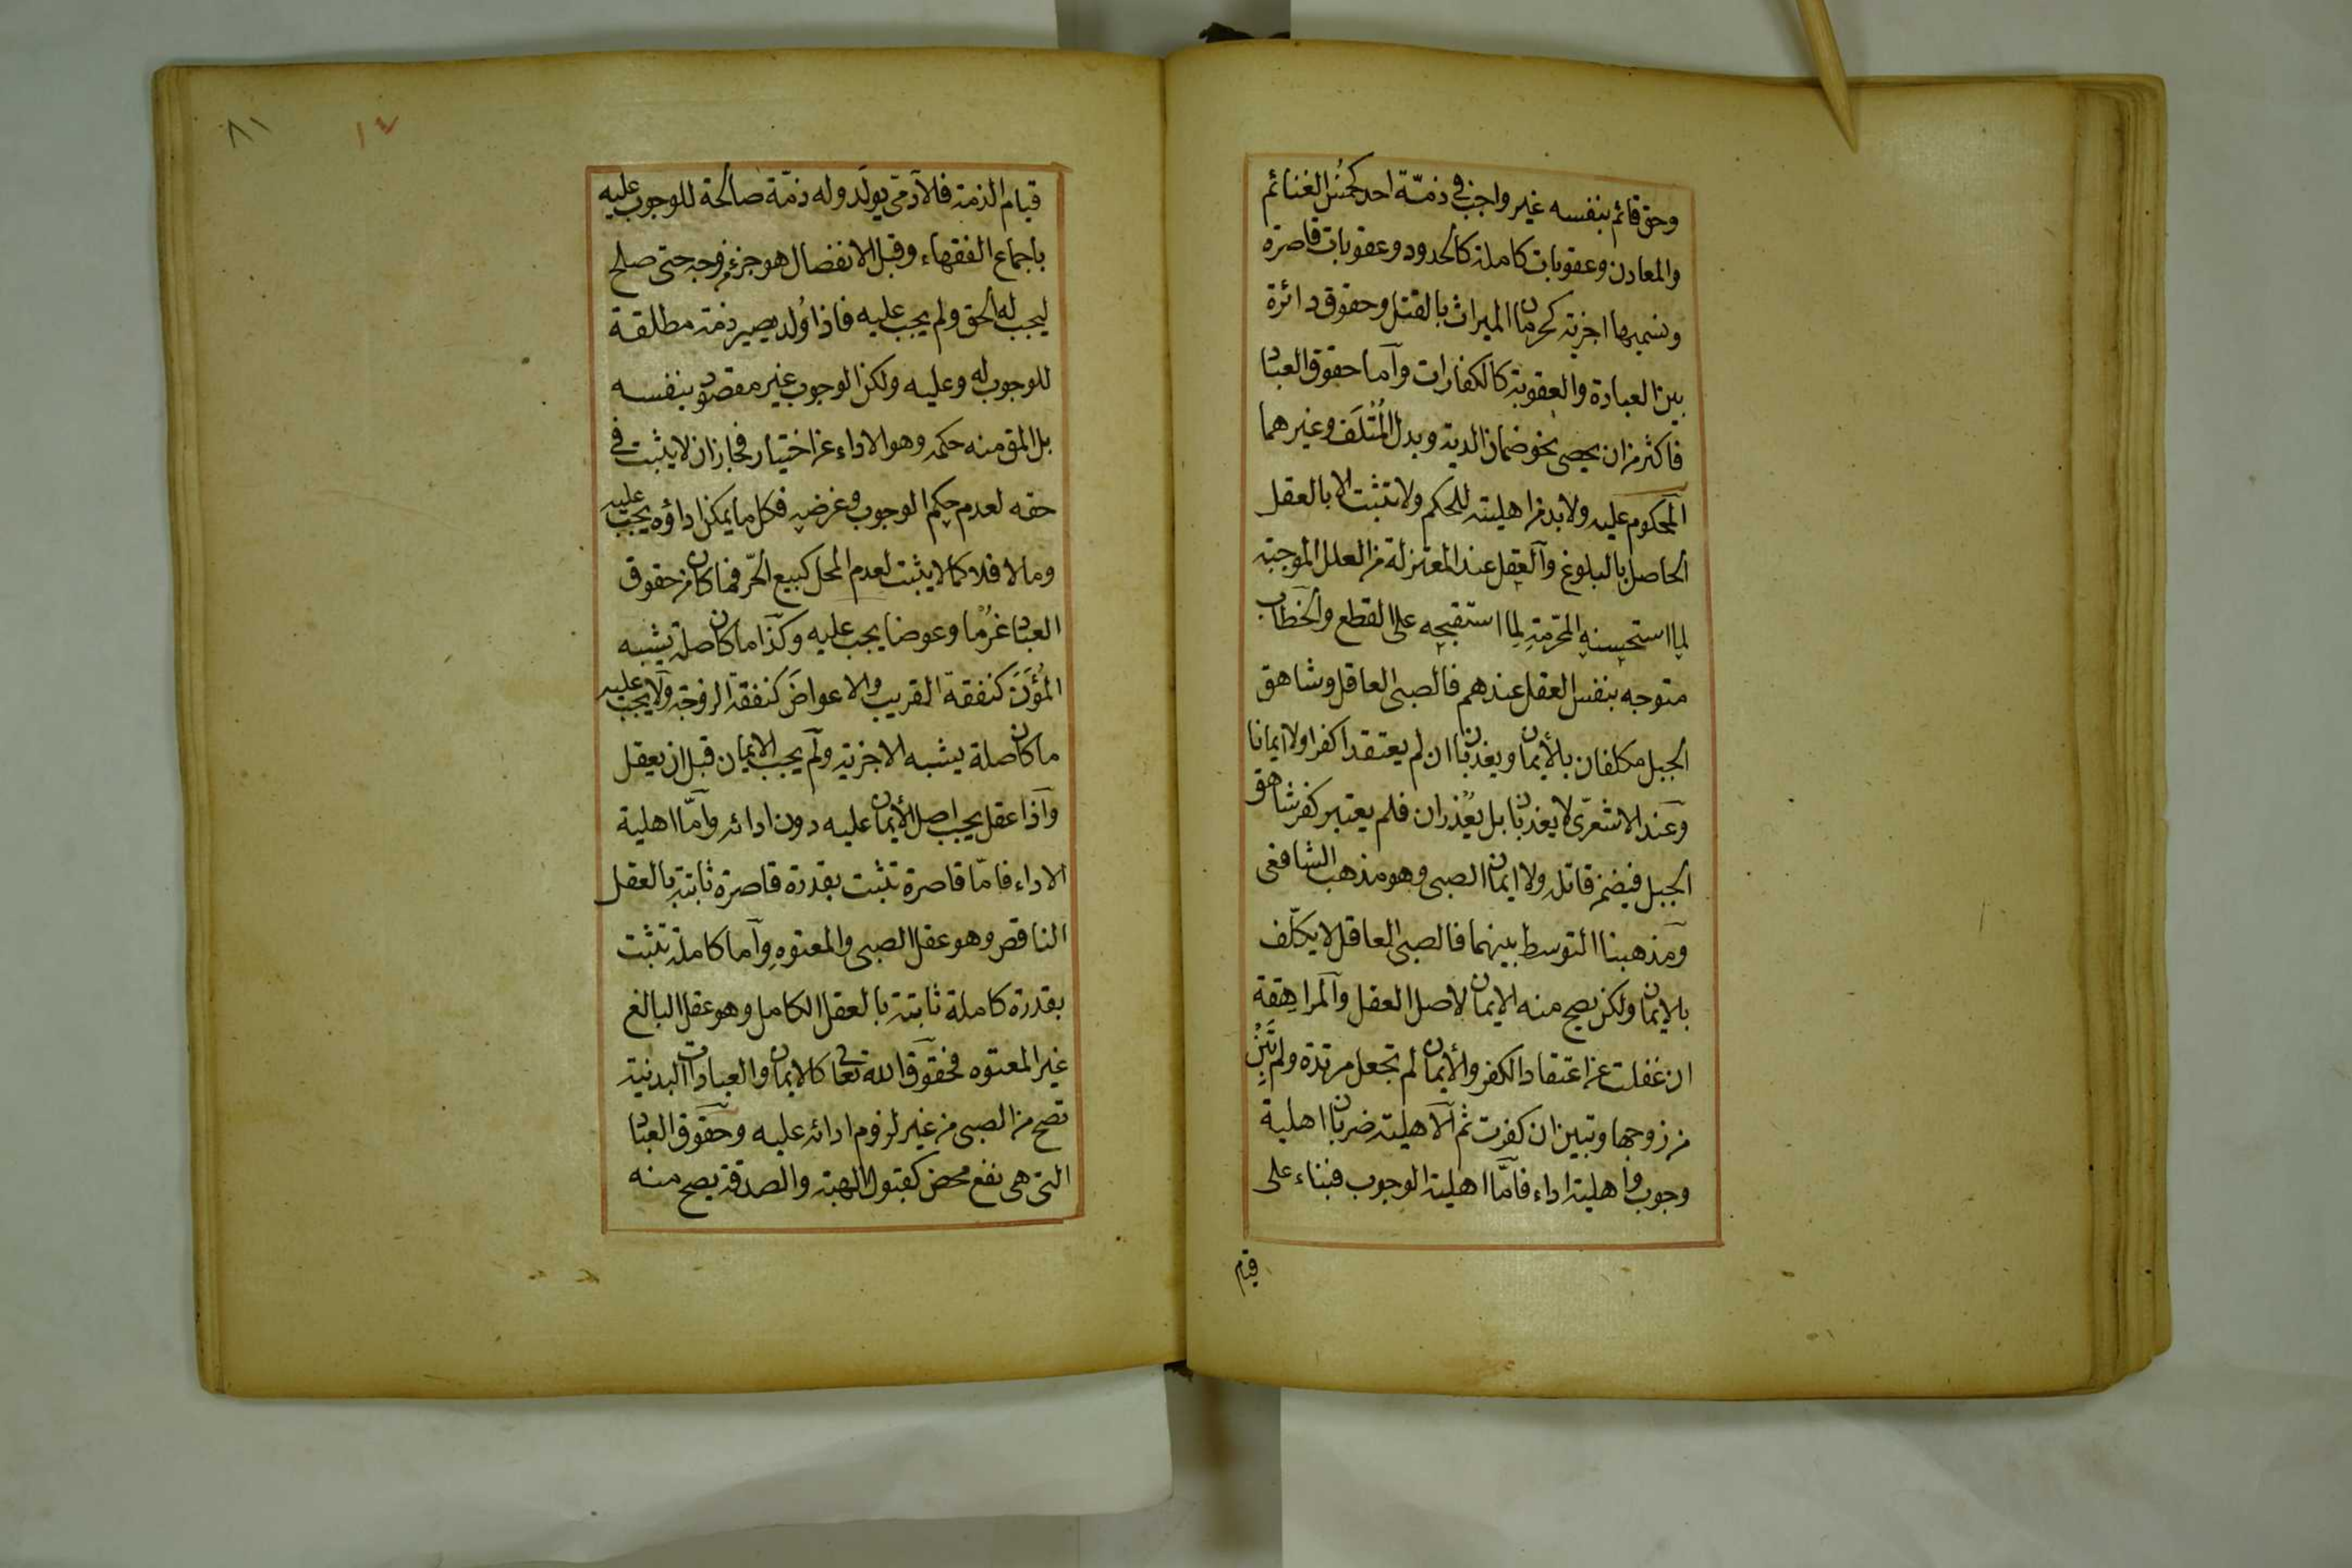 وحق قائم بنفسه غير واجب في ذمّة احد كخمُس الغنائم
والمعادن وعقوبات كاملة كالحدود وعقوبات قاصرة
ونسميها اجزية كحرمان الميراث بالقتل وحقوق دائرة
بين العبادة والعقوبة كالكفارات وآما حقوق العباد
فاكثر من ان يحصى نحو ضمان الدية وبدل المُتْلَف وغيرهما
المحكوم عليه ولا بد من اهليته للحكم ولا تثبت الا بالعقل
الحاصل بالبلوغ وآلعقل عند المعتزلة من العلل الموجبة
لِما استحسنه المحرّمةِ لِما استقبحه على القطع والخطاب
متوجه بنفس العقل عندهم فالصبى العاقل وشاهق
الجبل مكلفان بالأيمان ويعذبان ان لم يعتقدا كفرا ولا ايمانا
وعند الاشعرىّ لا يعذبان بل يُعْذران فلم يعتبر كفر شاهق
الجبل فيضمن قاتله ولا ايمان الصبى وهو مذهب الشافعى
ومذهبنا التوسط بينهما فالصبى العاقل لا يكلّف
بالايمان ولكن يصح منه الايمان لاصل العقل وآلمراهِقة
ان غفلت عن اعتقاد الكفر والأيمان لم تجعل مرتدة ولم تَبِنْ
من زوجها وتبين ان كفرت ثم آلاهلية ضربان اهلية
وجوب واهلية اداء فامّا اهلية الوجوب فبناء على
قيام
٨١
١٤
قيام الذمة فالآدمىّ يولَد وله ذمّة صالحة للوجوب عليه
باجماع الفقهاء وقبل الانفصال هو جزء من وجه حتى صلح
ليجب له الحق ولم يجب عليه فاذا وُلد يصير ذمته مطلقة
للوجوب له وعليه ولكن الوجوب غير مقصود بنفسه
بل المق منه حكمه وهو الاداء عن اختيار فجاز ان لا يثبت في
حقه لعدم حكم الوجوب وغرضه فكل ما يمكن اداؤه يجب عليه
وما لا فلا كما لا يثبت لعدم المحل كبيع الحّر فما كان من حقوق
العباد غُرْما وعوضا يجب عليه وكذا ما كان صلة يشبه
المُؤَنَ كنفقة القريب والاعواضَ كنفقة الزوجة ولا يجب عليه
ما كان صلة يشبه الاجزية ولم يجب الايمان قبل ان يعقل
وآذا عقل يجب اصل الأيمان عليه دون ادائه وآمّا اهلية
الاداء فامّا قاصرة تثبت بقدرة قاصرة ثابتة بالعقل
الناقص وهو عقل الصبى والمعتوهِ وآما كاملة تثبت
بقدرة كاملة ثابتة بالعقل الكامل وهو عقل البالغ
غير المعتوه فحقوق الله تعالى كالايمان والعبادات البدنية
تصح من الصبى من غير لزوم ادائه عليه وحقوق العباد
التى هى نفع محض كقبول الهبة والصدقة يصح منه